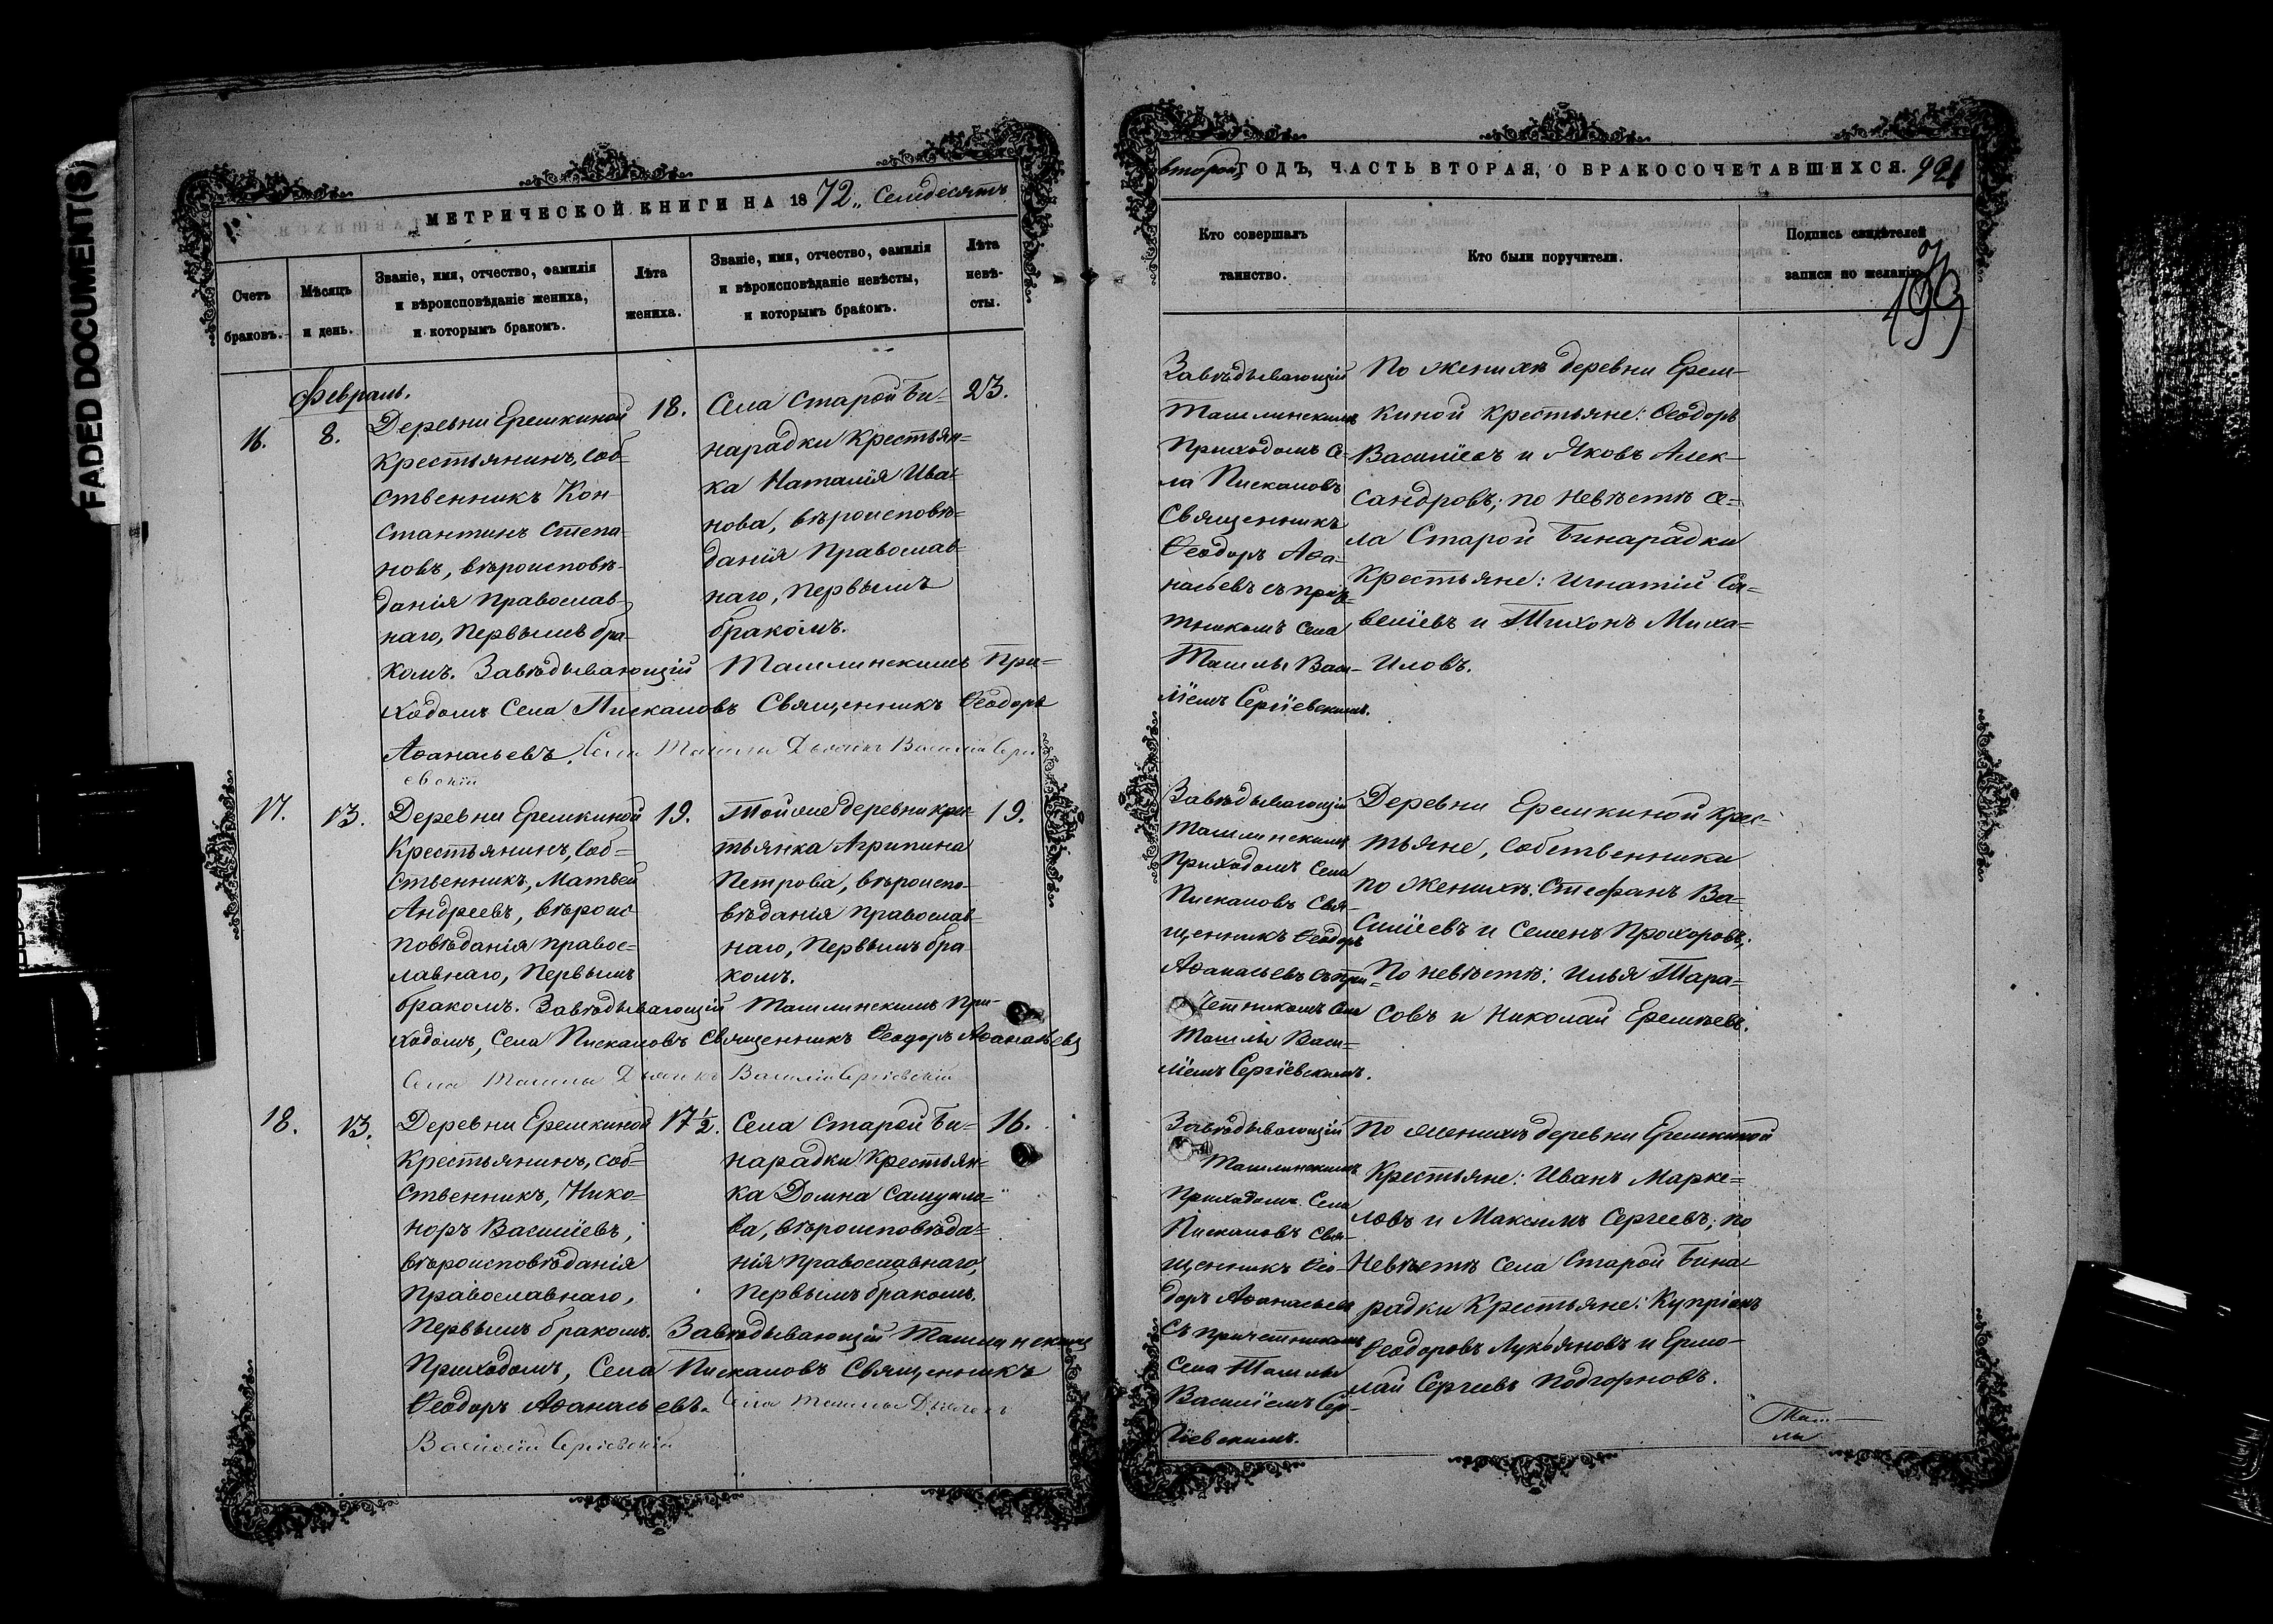 FADED DOCUMENT(S)
МЕТРИЧЕСКОЙ КНИГИ НА 1872, Семидесять
Счетъ браковъ.
Мѣсяцъ и день.
Званіе, имя, отчество, фамилія и вѣроисповѣданіе жениха, и которымъ бракомъ.
Лѣта жениха.
Званіе, имя, отчество, фамилія и вѣроисповѣданіе невѣсты, и которымъ бракомъ.
Лѣта невѣ-
сты.
Февраль.
16.
8.
Деревни Ерешкиной
Крестьянинъ, соб-
ственникъ Кон-
стантинъ Степа-
новъ, вѣроисповѣ-
данія Православ-
наго, Первымъ бра-
комъ. Завѣдывающій Ташлинскимъ При-
ходомъ Села Пискаловъ Священникъ Ѳеодоръ
Аѳанасьевъ. Села Ташлы Дьячекъ Василій Серги
евскій
18.
Села Старой Би-
нарадки Крестьян-
ка Наталія Ива-
нова, вѣроисповѣ-
данія Православ-
наго, Первымъ
бракомъ.
23.
17.
13.
Деревни Ерешкиной
Крестьянинъ, Соб-
ственникъ, Матвей
Андреевъ, вѣроис
повѣданія правос-
лавнаго, Первымъ
бракомъ. Завѣдывающій Ташлинскимъ При-
ходомъ, Села Пискаловъ Священникъ Ѳеодоръ Аѳанасьевъ
Села Ташлы Дьячекъ Василій Сергіевскій
19.
Той же деревни крес-
тьянка Агрипина
Петрова, вѣроиспо-
вѣданія православ-
наго, Первымъ бра
комъ.
19.
18.
13.
Деревни Ерешкиной
Крестьянинъ, соб-
ственникъ, Нико-
норъ Васильевъ,
вѣроисповѣданія
Православнаго,
Первымъ бракомъ. Завѣдывающій Ташлинскимъ
Приходомъ, Села Пискаловъ Священникъ
Ѳеодоръ Аѳанасьевъ. Села Ташлы Дьячекъ
Василій Сергіевскій
17 1/2.
Села Старой Би-
нарадки Крестьян-
ка Домна Самуило-
ва, вѣроисповѣда-
нія Православнаго,
Первымъ бракомъ.
16.
второй, ГОДЪ, ЧАСТЬ ВТОРАЯ, О БРАКОСОЧЕТАВШИХСЯ.
Кто совершалъ таинство.
Кто были поручители.
Подпись свидѣтелей записи по желанію.
Завѣдывающій
Ташлинскимъ
Приходомъ Се-
ла Пискаловъ
Священникъ
Ѳеодоръ Аѳа-
насьевъ съ приче-
тникомъ Села
Ташлы Васи-
ліемъ Сергіевскимъ.
По женихѣ деревни Ереш-
киной крестьяне: Ѳеодоръ
Васильевъ и Яковъ Алек-
сандровъ; по невѣстѣ Се-
ла Старой Бинарадки
Крестьяне: Игнатій Са-
вельевъ и Тихонъ Миха-
иловъ.
Завѣдывающій
Ташлинскимъ
Приходомъ Села
Пискаловъ Свя-
щенникъ Ѳеодоръ
Аѳанасьевъ съ при-
четникомъ Села
Ташлы Васи-
ліемъ Сергіевскимъ.
Деревни Ерешкиной Крес-
тьяне, Собственники
по женихѣ: Стефанъ Ва-
сильевъ и Семенъ Прохоровъ;
По невѣстѣ: Илья Тара-
совъ и Николай Еремѣевъ.
Завѣдывающій
Ташлинскимъ
Приходомъ Села
Пискаловъ Свя-
щенникъ Ѳео-
доръ Аѳанасьевъ
съ причетникомъ
Села Ташлы
Василіемъ Сер-
гіевскимъ.
По женихѣ деревни Ерешкиной
Крестьяне: Иванъ Марке-
ловъ и Максимъ Сергеевъ; по
Невѣстѣ Села Старой Бина-
радки Крестьяне: Купріянъ
Ѳеодоровъ Лукьяновъ и Ермо-
лай Сергеевъ Подгорновъ.
Таш-
лы